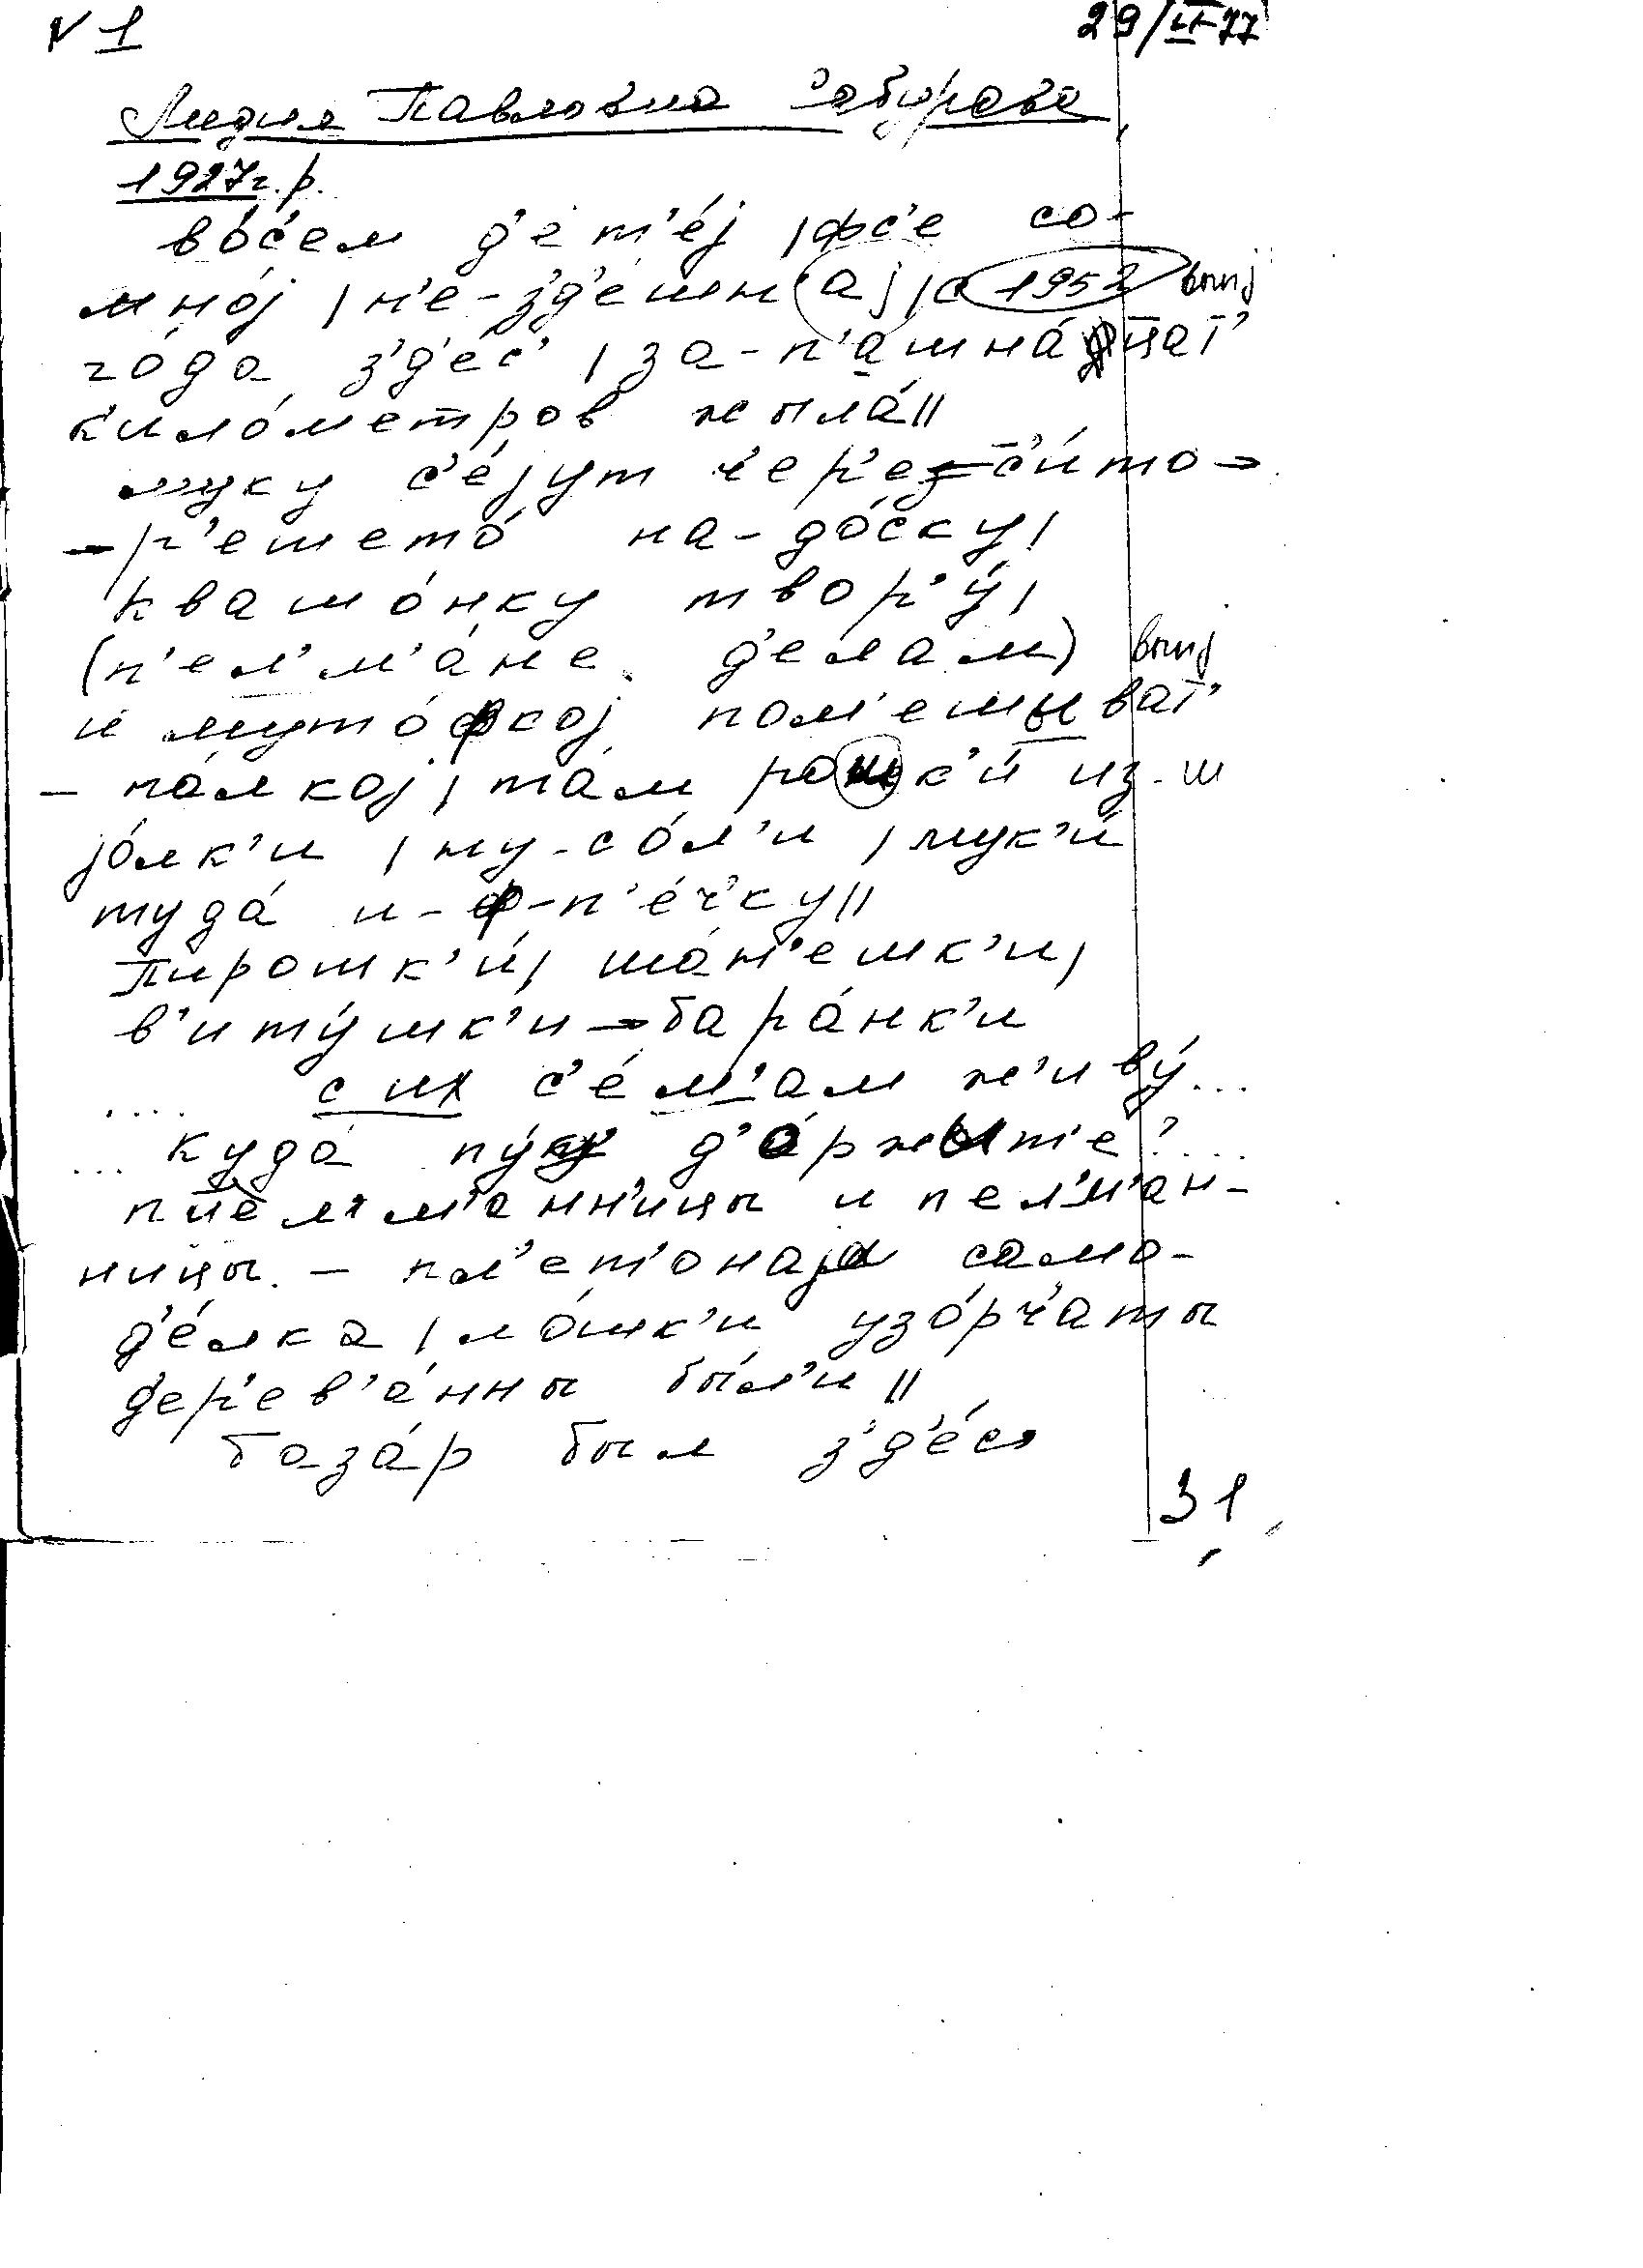 N 1
29/IX 77
Лидия Павловна Сабурова
1927 г. р.
во́с'ем д'ет'е́j, фс'е со-
мно́j, н'е-з'д'ешнаj, с 1952
го́да з'д'ес', за-п'атна́цат'
к'ило́метров жыла́ ||
муку с'е́jут ч'ер'ез с'и́то →
→ р'ешето́ на-до́ску,
квашо́нку твор'у́,
(п'ел'м'а́не д'елам)
и муто́фкоj пом'ешыват'
– па́лкоj, там рошк'и́ из-
jо́лк'и, ну-со́л'и, мук'и́
туда́ и-ф-п'е́ч'ку ||
пирошк'и́, ша́н'ешк'и,
в'иту́шк'и → бара́нк'и
.... с их с'е́м'ам ж'иву́...
... куда́ д'аржыт'е?....
и пел'м'ан-
ницы. – пл'ет'онаjа само-
д'е́лка, ло́шк'и узо́рч'аты
д'ер'ев'а́нны бы́л'и ||
база́р был з'д'е́с'
31